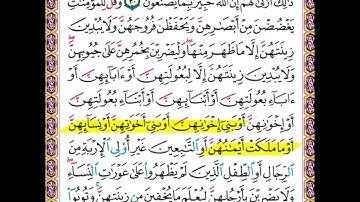 ذَٰلِكَ أَزْكَىٰ لَهُمْ إِنَّ ٱللَّهَ خَبِيرٌۢ بِمَا يَصْنَعُونَ ٣٠ وَقُل لِّلْمُؤْمِنَٰتِ
يَغْضُضْنَ مِنْ أَبْصَٰرِهِنَّ وَيَحْفَظْنَ فُرُوجَهُنَّ وَلَا يُبْدِينَ
زِينَتَهُنَّ إِلَّا مَا ظَهَرَ مِنْهَا وَلْيَضْرِبْنَ بِخُمُرِهِنَّ عَلَىٰ جُيُوبِهِنَّ
وَلَا يُبْدِينَ زِينَتَهُنَّ إِلَّا لِبُعُولَتِهِنَّ أَوْ ءَابَآئِهِنَّ
أَوْ ءَابَآءِ بُعُولَتِهِنَّ أَوْ أَبْنَآئِهِنَّ أَوْ أَبْنَآءِ بُعُولَتِهِنَّ
أَوْ إِخْوَٰنِهِنَّ أَوْ بَنِىٓ إِخْوَٰنِهِنَّ أَوْ بَنِىٓ أَخَوَٰتِهِنَّ أَوْ نِسَآئِهِنَّ
أَوْ مَا مَلَكَتْ أَيْمَٰنُهُنَّ أَوِ ٱلتَّٰبِعِينَ غَيْرِ أُو۟لِى ٱلْإِرْبَةِ مِنَ
ٱلرِّجَالِ أَوِ ٱلطِّفْلِ ٱلَّذِينَ لَمْ يَظْهَرُوا۟ عَلَىٰ عَوْرَٰتِ ٱلنِّسَآءِ
وَلَا يَضْرِبْنَ بِأَرْجُلِهِنَّ لِيُعْلَمَ مَا يُخْفِينَ مِن زِينَتِهِنَّ وَتُوبُوٓا۟